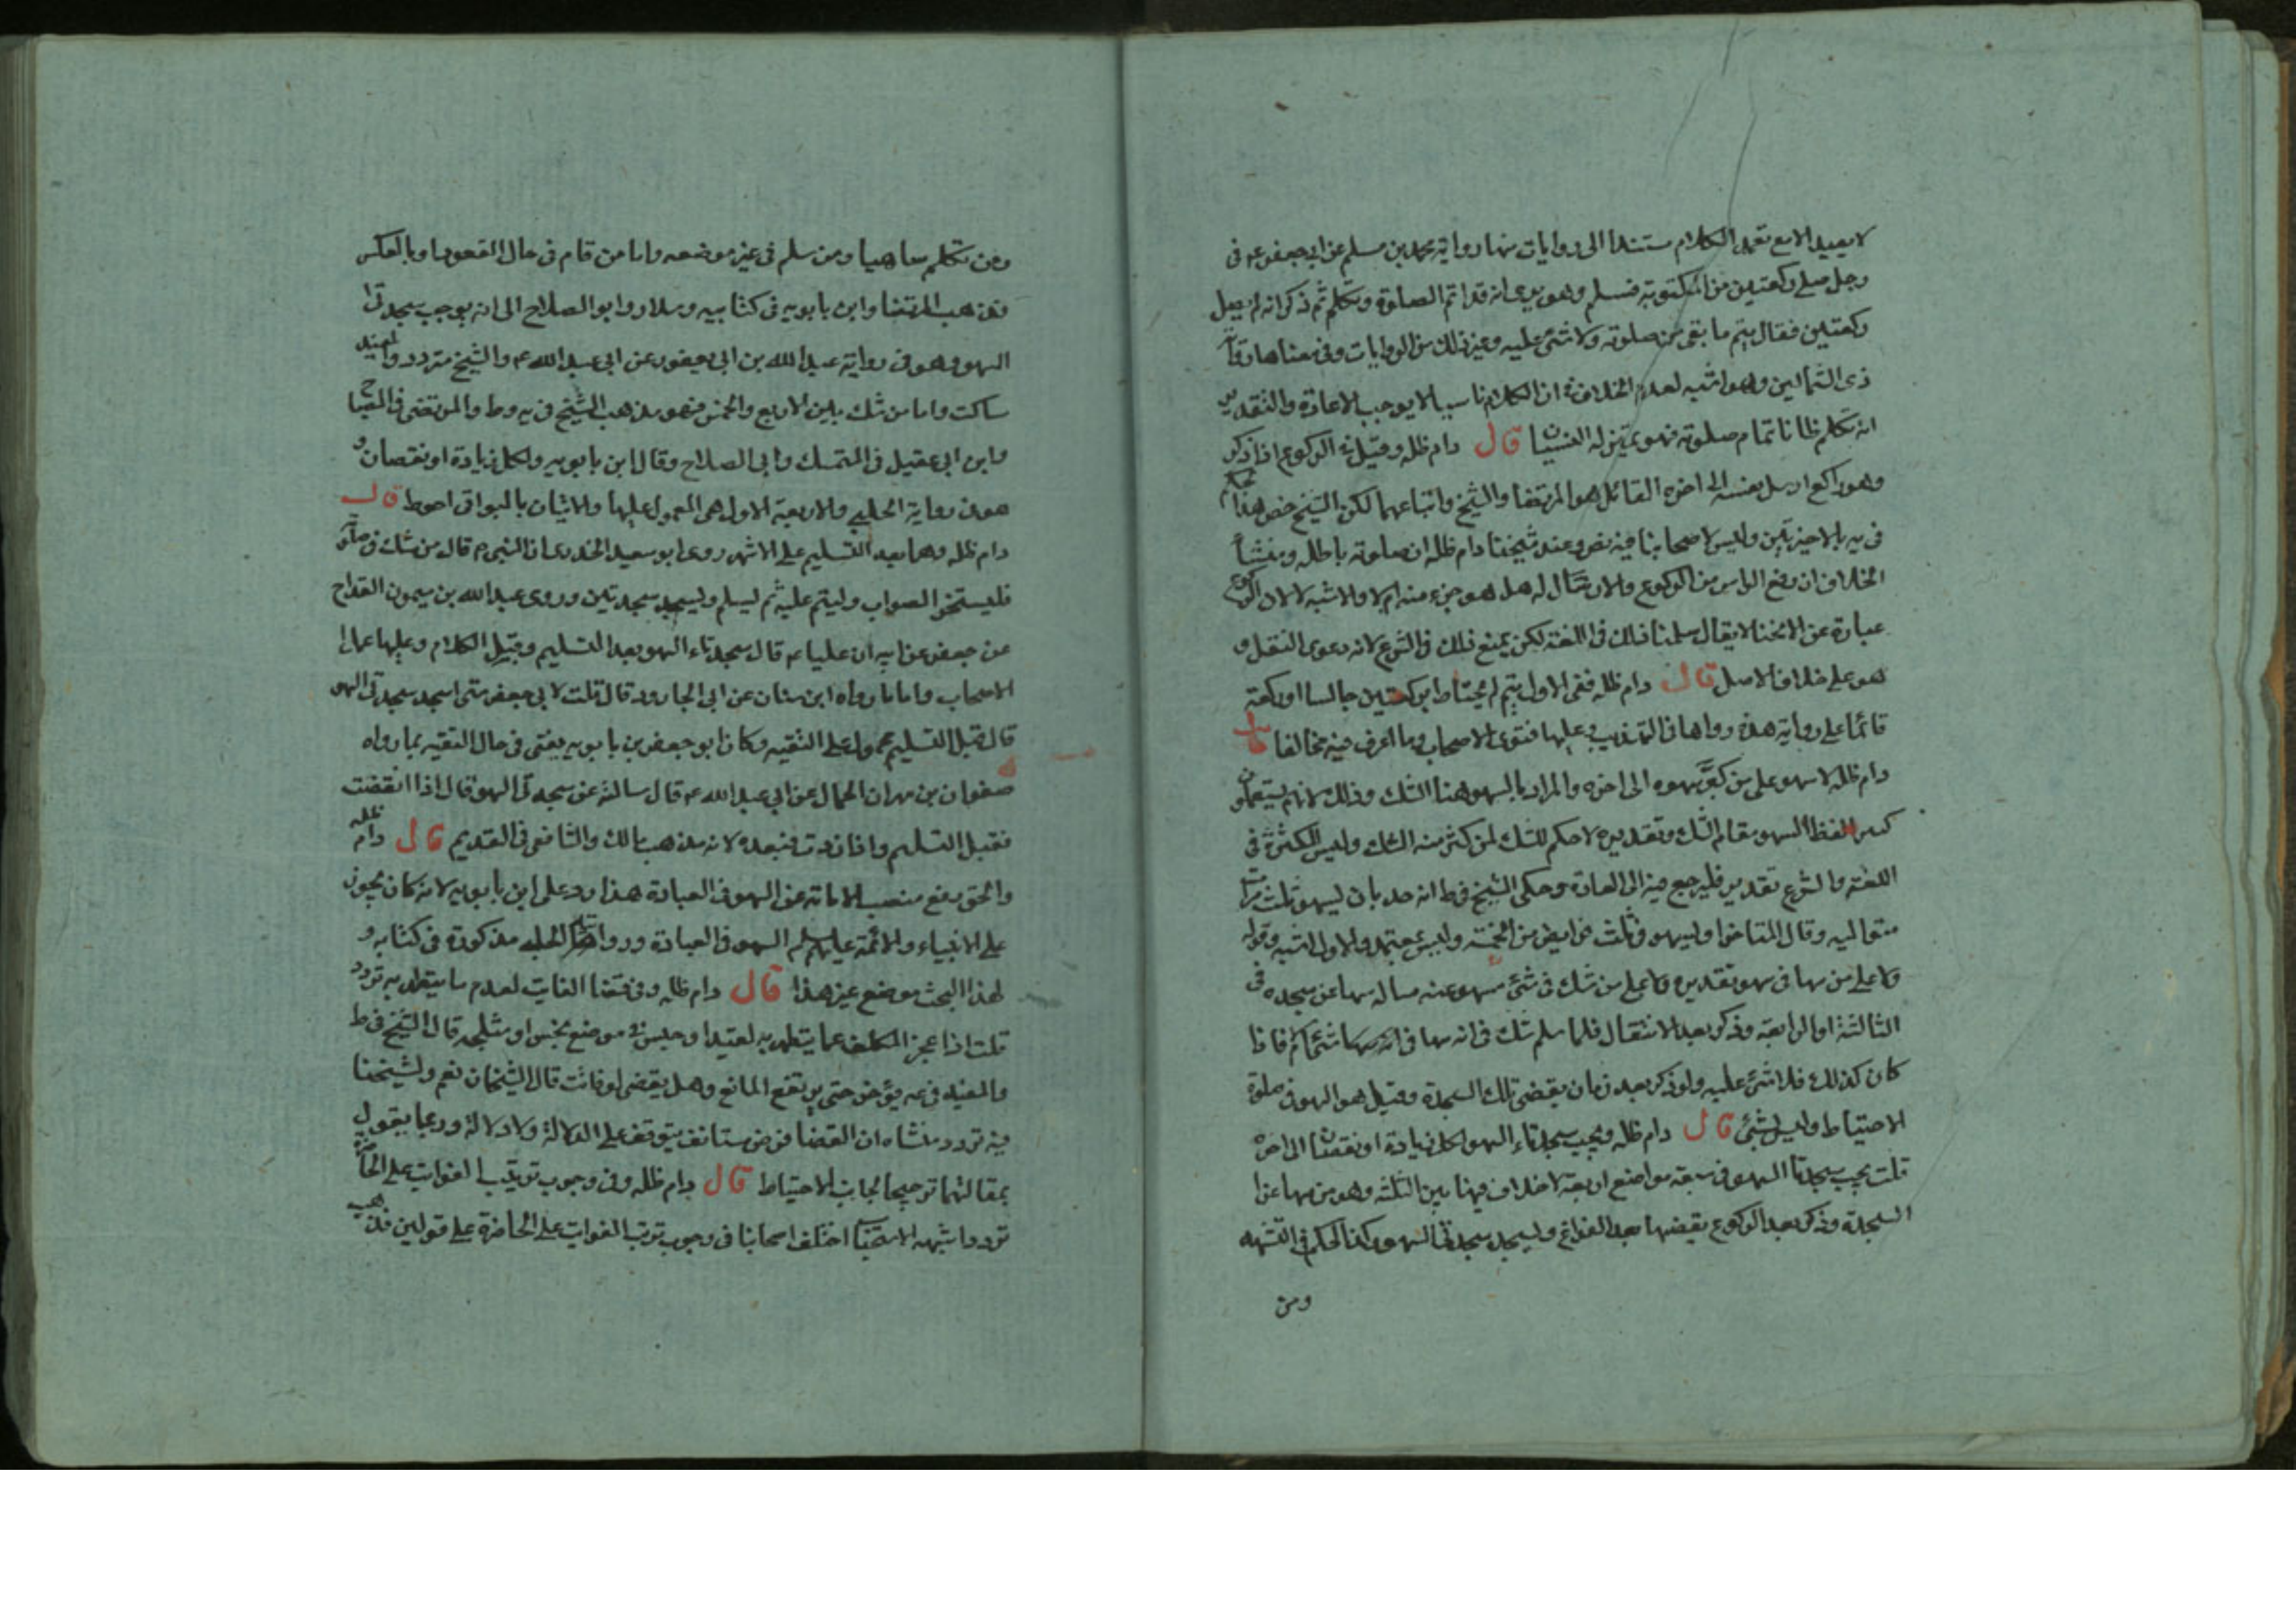 لا يعيد الا مع تعمد الكلام مستندا الى روايات منها رواية محمد بن مسلم عن ابى جعفر ع فى
رجل صلى ركعتين من المكتوبة فسلم وهو يرى انه قد اتم الصلوة وتكلم ثم ذكر انه لم يصل
ركعتين فقال يتم ما بقى من صلوته ولا شئ عليه وغير ذلك من الروايات وفى معناها
ذى الشمالين وهو اشبه لعدم الخلاف فى ان الكلام ناسيا لا يوجب الاعادة والتقدير
انه تكلم ظانا تمام صلوته فهو بمنزلة النسيان قال دام ظله وقيل فى الركوع اذا ذكر
وهو راكع ارسل نفسه الى اخره القائل هو المرتضا والشيخ واتباعهما لكن الشيخ خص هذا
فى يه بالاخيرتين وليس لاصحابنا فيه نص وعند شيخنا دام ظله ان صلوته باطله ومنشأ
الخلاف ان رفع الراس من الركوع والارسال له هل هو جزء منه ام لا والاشبه لا لان الركوع
عبارة عن الانحنا لا يقال سلمنا ذلك فى اللغة لكن يمنع ذلك فى الشرع لانه دعوى النقل و
هو على خلاف الاصل قال دام ظله ففى الاول يتم ثم يحتاط بركعتين جالسا او ركعة
قائما على رواية هذه رواها فى التهذيب وعليها فتوى الاصحاب وما اعرف فيه مخالفا قال
دام ظله لا سهو على من كثر سهوه الى اخره والمراد بالسهو هنا الشك وذلك لانهم يستعملون
كثيرا لفظ السهو مقام الشك وتقديره لا حكم للشك لمن كثر منه الشك وليس للكثرة فى
اللغة والشرع تقدير فليرجع فيه الى العادة وحكى الشيخ فى ط انه حد بان ليسهو ثلث مرات
متواليه وقال المتاخر او ليسهو فى ثلث فرايض من الخمسة وليس بمعتمد والاول اشبه وقوله
ولا على من سها فى سهو تقديره ولا على من شك فى شئ مسهو عنه مساله سها عن سجده فى
الثالثة او الرابعة وذكر بعد الانتقال فلما سلم شك فى انه سها فى انه سها شئ ام لا فاذا
كان كذلك فلا شئ عليه ولو ذكر بعد زمان يقضى تلك السجدة وقيل هو السهو فى صلوة
الاحتياط وليس بشئ قال دام ظله ويجب سجدتاء السهو لكل زيادة او نقصان الى اخره
قلت يجب سجدتا السهو فى سبعة مواضع اربعة لا خلاف فيها بين الثلثه وهو من سها عن
السجدة وذكر بعد الركوع يقضيها بعد الفراغ وليسجد سجدتى السهو وكذا الحكم فى التشهد
ومن
ومن تكلم ساهيا ومن سلم فى غير موضعه واما من قام فى حال القعود او بالعكس
فذهب المرتضا وابن بابويه فى كتابيه وسلار وابو الصلاح الى انه يوجب سجدتى
السهو وهو فى رواية عبد الله بن ابى يعفور عن ابى عبد الله ع والشيخ متردد والمفيد
ساكت واما من شك بين الاربع والخمس فهو مذهب الشيخ فى يه وط والمرتضى فى المصباح
وابن ابى عقيل فى المتمسك وابى الصلاح وقال ابن بابويه ولكل زيادة او نقصان و
هو فى رواية الحلبى والاربعة الاول هى المعمول عليها والاتيان بالبواقى احوط قال
دام ظله وهما بعد التسليم على الاشهر روى ابو سعيد الخدرى ان النبى ص قال من شك فى صلوته
فليستحر الصواب وليتم عليه ثم ليسلم وليسجد سجدتين وروى عبد الله بن ميمون القداح
عن جعفر عن ابيه ان عليا ع قال سجدتاء السهو بعد التسليم وقبل الكلام وعليها عمل
الاصحاب واما ما رواه ابن سنان عن ابى الجارود قال قلت لابى جعفر متى اسجد سجدتى السهو
قال قبل التسليم محمول على التقيه وكان ابو جعفر بن بابويه يفتى فى حال التقيه بما رواه
صفوان بن مهران الجمال عن ابى عبد الله ع قال سالته عن سجدتى السهو قال اذا انقضت
فقبل التسليم واذا زدت فبعده لانه مذهب مالك والشافعى فى القديم قال دام ظله
والحق رفع منصب الامامة عن السهو فى العبادة هذا رد على ابن بابويه لانه كان يجوز
على الانبياء والائمة عليهم السلم السهو فى العبادة مذكورة فى كتابه و
لهذا البحث موضع غير هذا قال دام ظله وفى قضا الفايت لعدم ما يتطهر به تردد
قلت اذا عجز المكلف عما يتطهر به لقيد او حبس فى موضع نجس او مثلجه قال الشيخ فى ط
والمفيد فى عه يؤخر حتى يرتفع المانع وهل يقضى لو فاتت قال الشيخان نعم ولشيخنا
فيه تردد منشاه ان القضا فرض مستانف يتوقف على الدلالة ولا دلالة وربما يقول
بمقالتهما ترجيحا لجانب الاحتياط قال دام ظله وفى وجوب ترتيب الفوايت على الحاضرة
تردد اشبهه الاستحباب اختلف اصحابنا فى وجوب ترتب الفوايت على الحاضرة على قولين فذهب